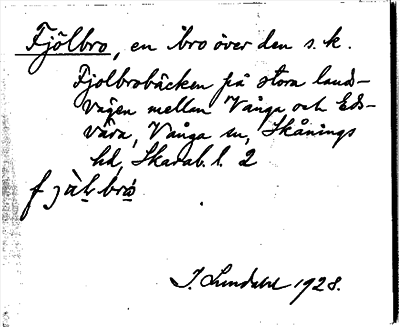 Fjölbro, en bro över den s.k.
Fjolbrobäcken på stora lands-
vägen mellen Vånga och Eds-
våra, Vånga sn, Skånings
hd, Skarab. l. 2
fjàl·brò
I. Lundahl 1928.